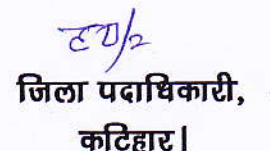 ह0/-
जिला पदाधिकारी,
कटिहार।